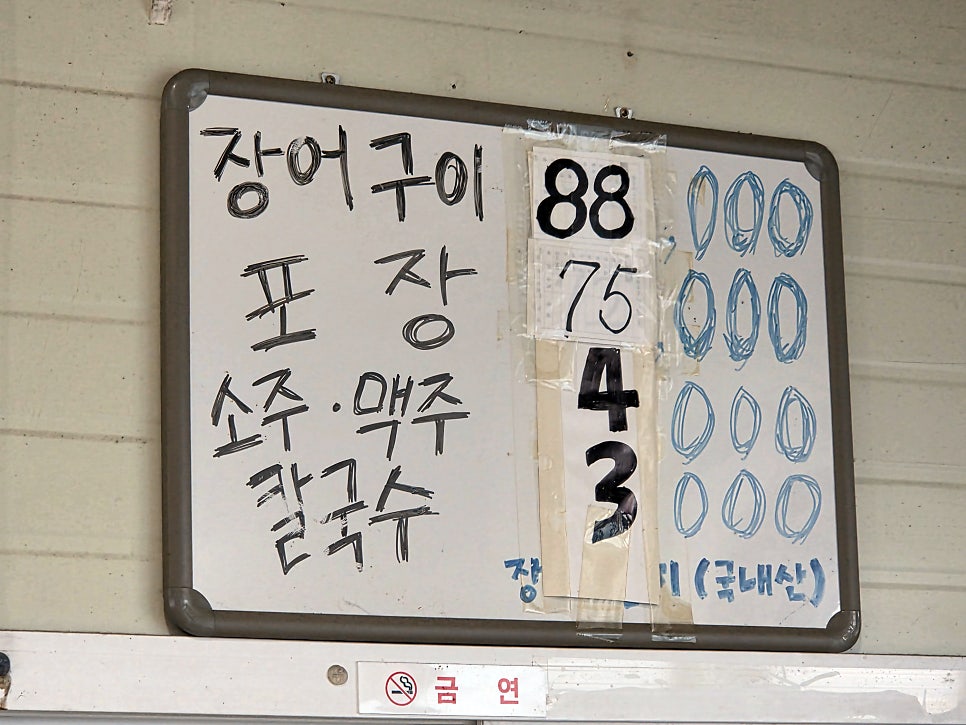 장어구이 88,000
포 장 75,000
소주·맥주 4 000
칼국수 3 000
(국내산)
금 연